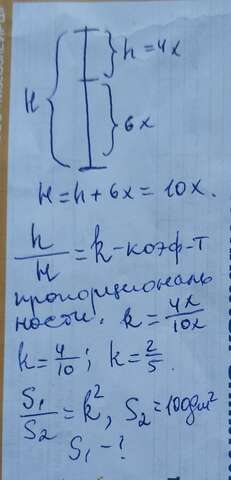 h = 4x
H
6x
H = h + 6x = 10x.
h/H = k - коэф-т
пропорциональ
ности. k = 4x/10x
k = 4/10; k = 2/5.
S₁/S₂ = k², S₂ = 100дм²
S₁ - ?